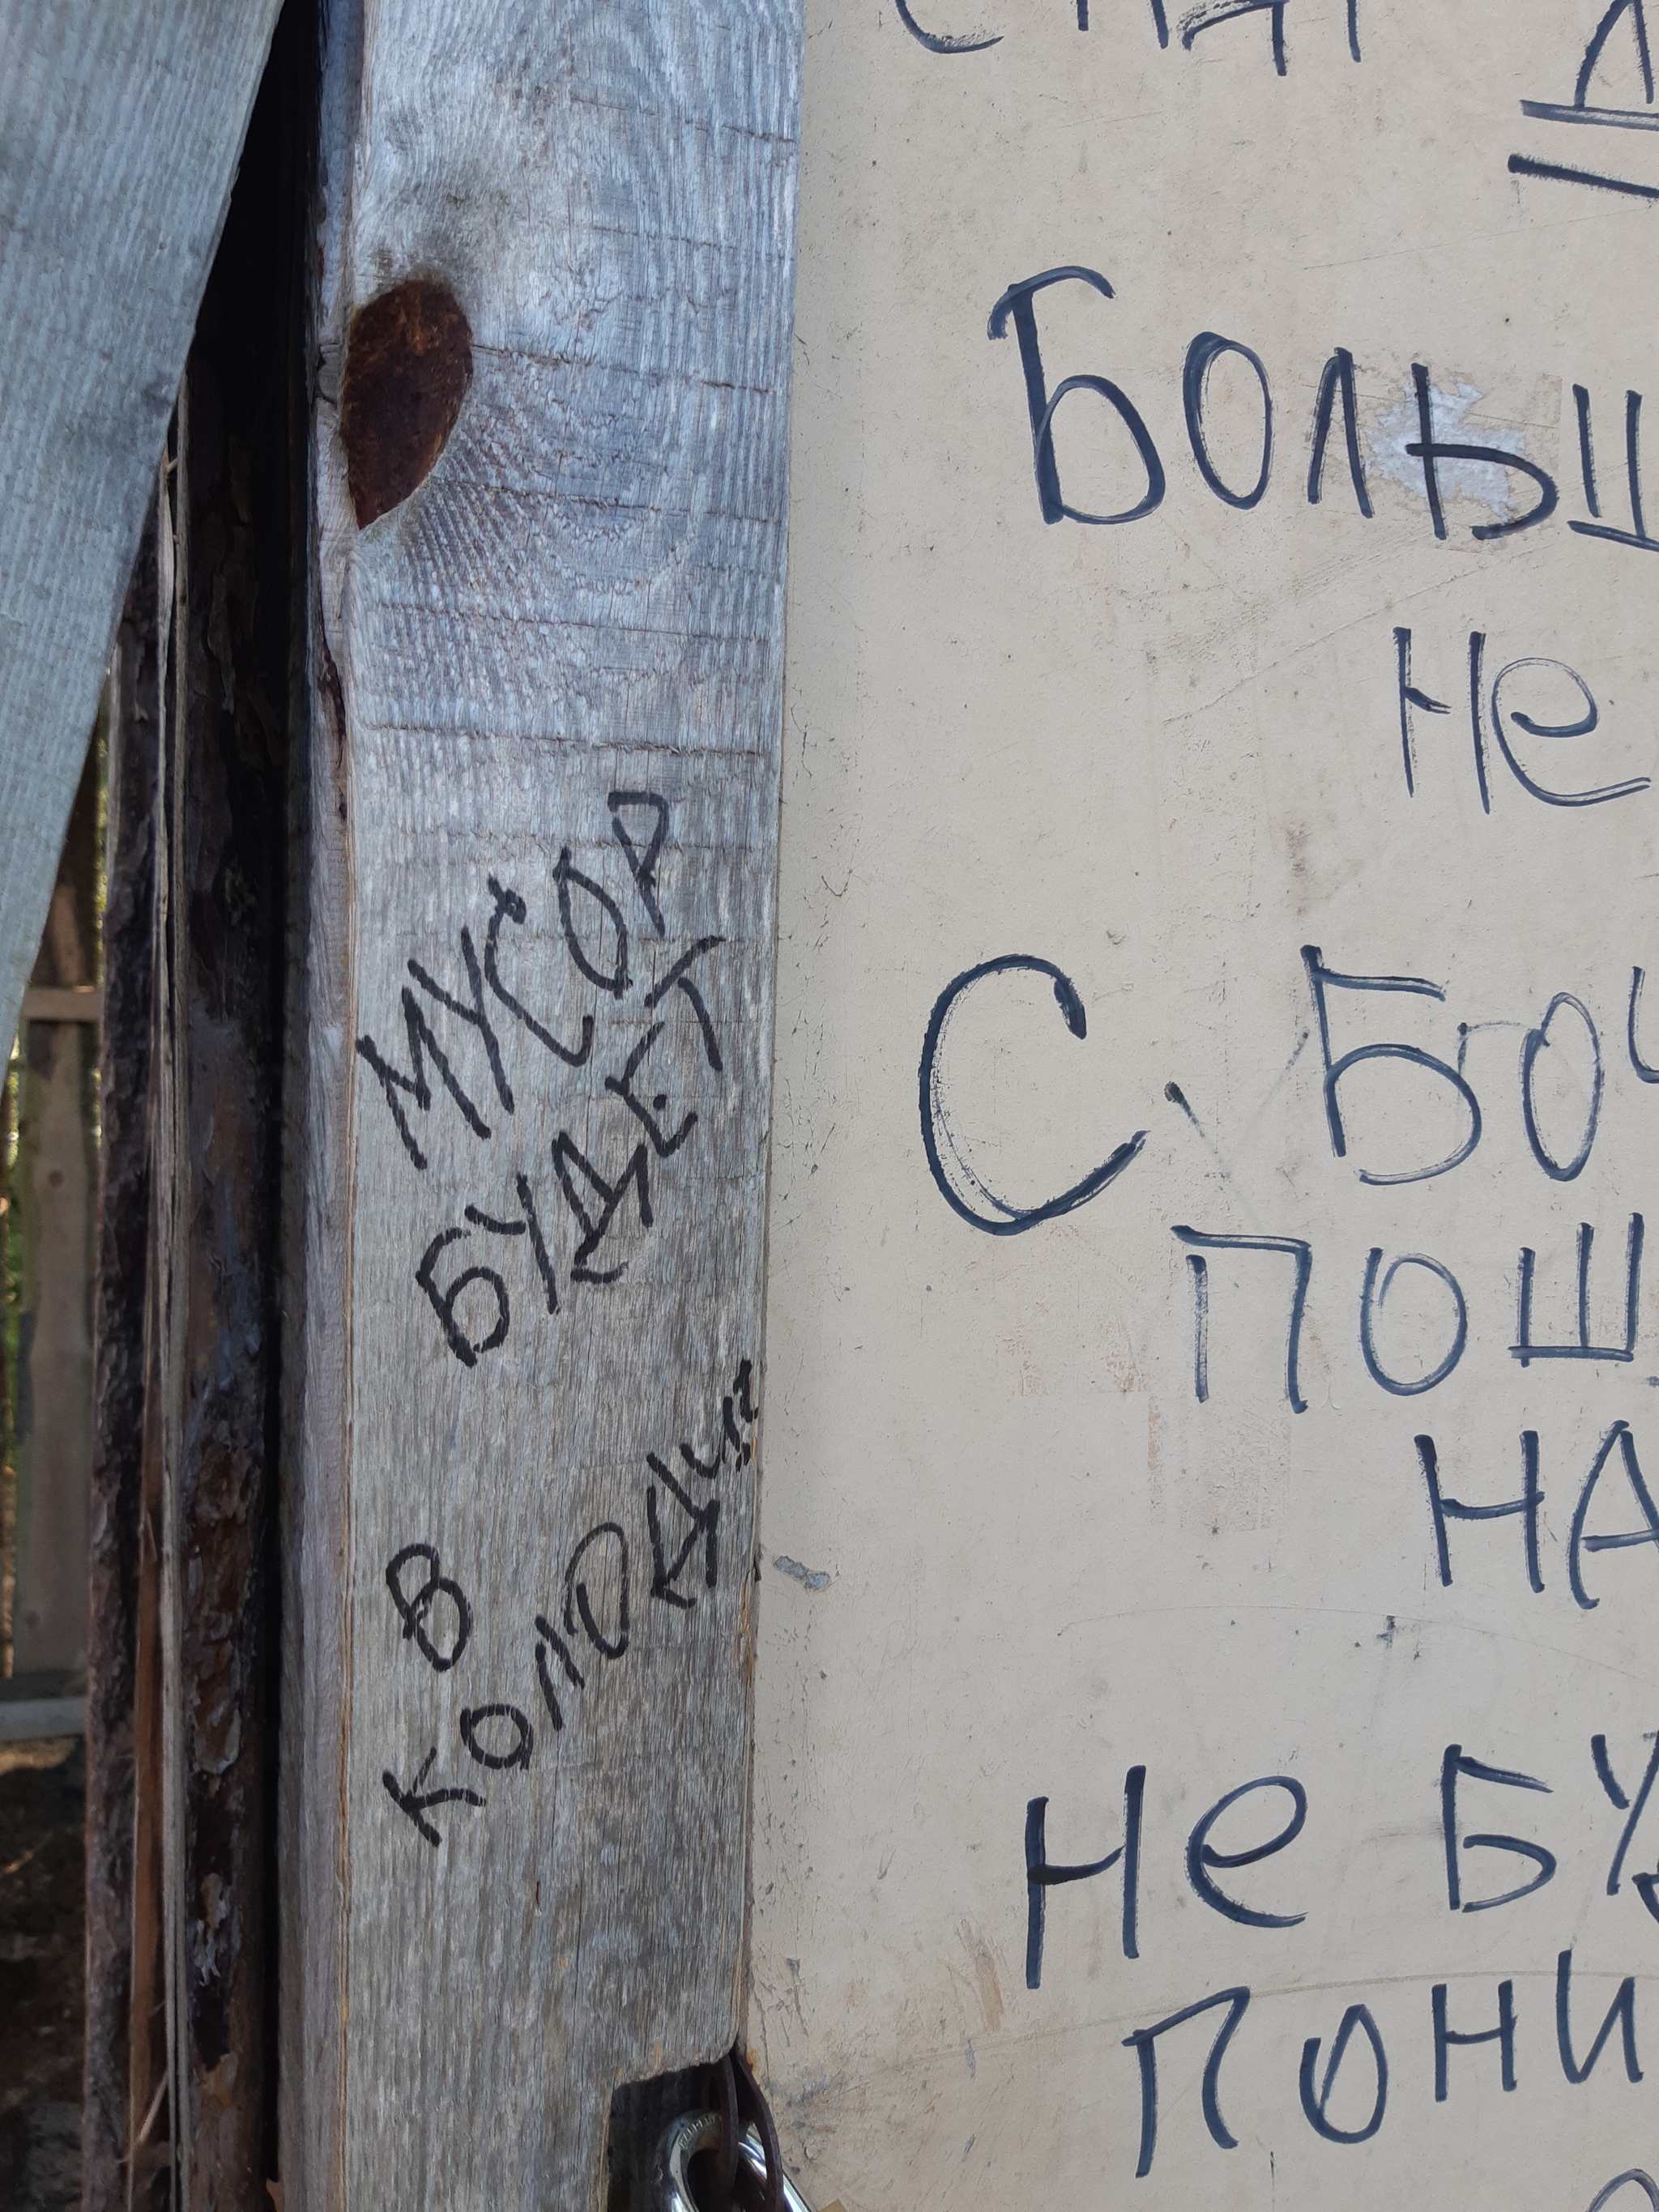 МУСОР
БУДЕТ
В
КОЛОДЦЕ
БОЛЬШ
Не
С БОЧ
ПОШ
НА
Не БУД
ПОНИ